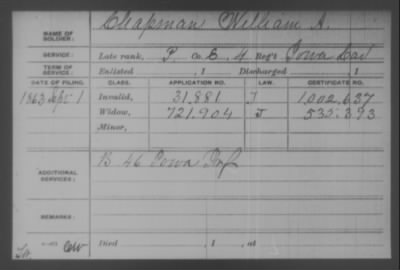 NAME OF SOLDIER: Chapman William A.
SERVICE: Late rank, P Co. E. 4 Reg't Iowa Cav
TERM OF SERVICE: Enlisted , 1 Discharged , 1
DATE OF FILING. CLASS. APPLICATION NO. LAW. CERTIFICATE NO.
1863 Sept 1 Invalid, 31.881 1,002,637
Widow, 721.904 J 535.393
Minor,
ADDITIONAL SERVICES: B 46 Iowa Inf
REMARKS:
Died , 1 , at